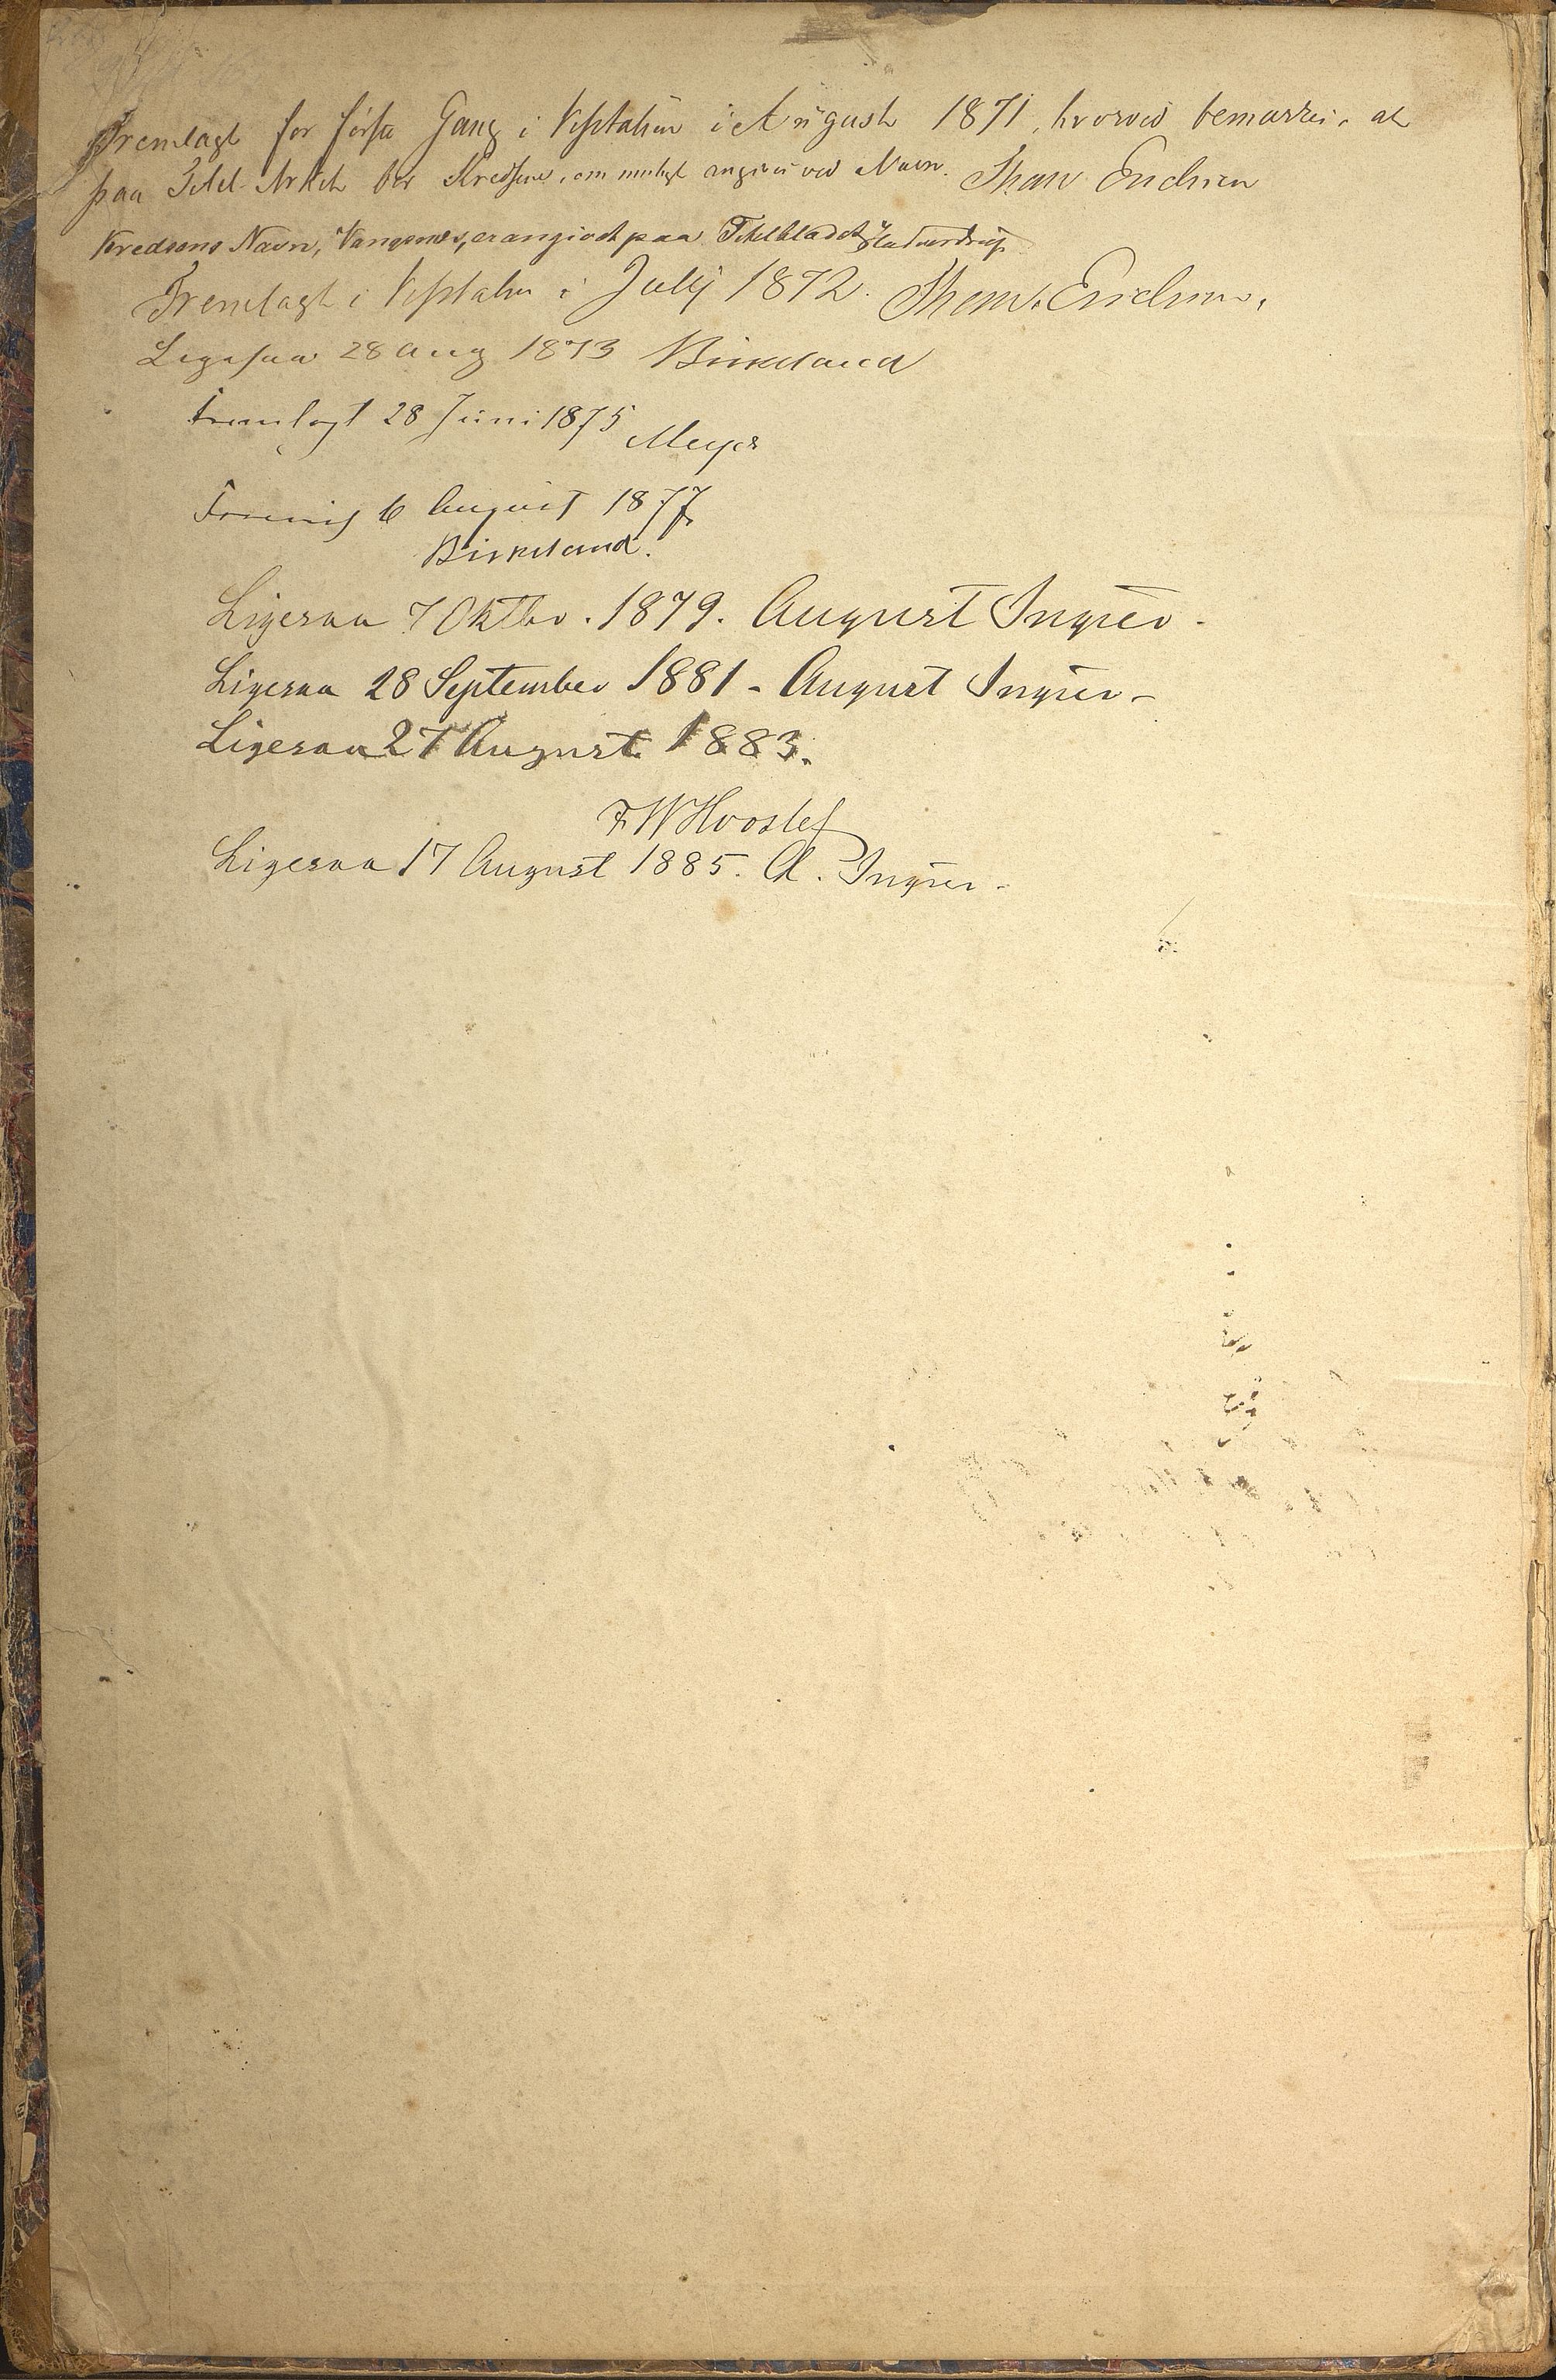 Fremlagt for første Gang i Visitatsen i August 1871, hvorved bemærkes, at
paa Titel-Arket bør Kredsene, om muligt angives ved Navn. Thom Erichsen
Kredsens Navn, "Vangsnes", er angivet paa Titelbladet
Fremlagt i Visitatsen i July 1872. Thom. Erichsen.
Ligesaa 28 Aug 1873 Birkeland
Fremlagt 28 Juni 1875 Meyer
Fremlagt 6 August 1877
Birkeland.
Ligesaa 7 Oktbr. 1879. August Ingier.
Ligesaa 28 September 1881 - August Ingier -
Ligesaa 27 August 1883.
F W Hvoslef
Ligesaa 17 August 1885. A. Ingier.